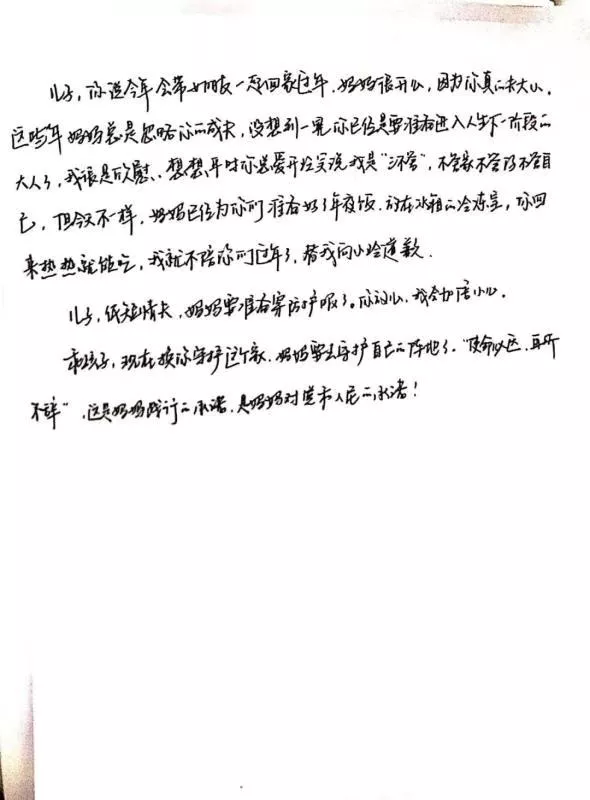 儿子，你说今年会带女朋友一起回家过年，妈妈很开心，因为你真的长大了，
这些年妈妈总是忽略你的成长，没想到一晃你已经是要准备进入人生下一阶段的
大人了，我很是欣慰。想想平时你总爱开玩笑说我是“三不管”，不管家不管你不管自
己，但今天不一样，妈妈已经为你们准备好了年夜饭，放在冰箱的冷冻室，你回
来热热就能吃，我就不陪你们过年了，替我向小玲道歉。
儿子，纸短情长，妈妈要准备穿防护服了。你放心，我会加倍小心。
乖孩子，现在换你守护这个家，妈妈要去守护自己的阵地了。“使命必达，再所
不辞”，这是妈妈践行的承诺，是妈妈对党和人民的承诺！